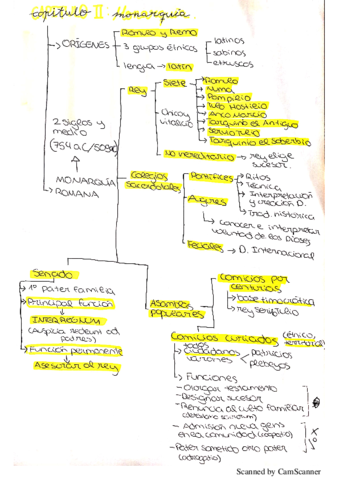 capítulo II: monarquía
ORÍGENES
Rómulo y Remo
3 grupos étnicos
latinos
sabinos
etruscos
lengua → latín
Rey
Siete
Rómulo
Numa
Pompilio
Tulo Hostilio
Anco Marcio
Tarquino el Antiguo
Servio Tulio
Tarquino el Soberbio
vitalicio
No hereditario → rey elige sucesor.
2 siglos y medio
(754 a.C/509a.C)
MONARQUÍA ROMANA
Colegios sacerdotales
Pontífices
Ritos
Técnica
Interpretación y creación D.
Trad. histórica
Augures
conocer e interpretar voluntad de los Dioses
Feciales → D. Internacional
Senado
1º pater familia
Principal función
INTERREGNUM
(Auspicia redeunt ad patres)
Función permanente
Asesorar al rey
Asambleas populares
Comicios por centurias
base timocrática
rey Servio Tulio
Comicios curiados (étnico, territorial)
todos
Ciudadanos varones
patricios
plebeyos
Funciones
- Otorgar testamento
- Designar sucesor
- Renuncia al culto familiar
(detestatio sacrorum)
- Admisión nueva gens en la comunidad (cooptatio)
- Pater sometido otro pater
(adrogatio)
Scanned by CamScanner